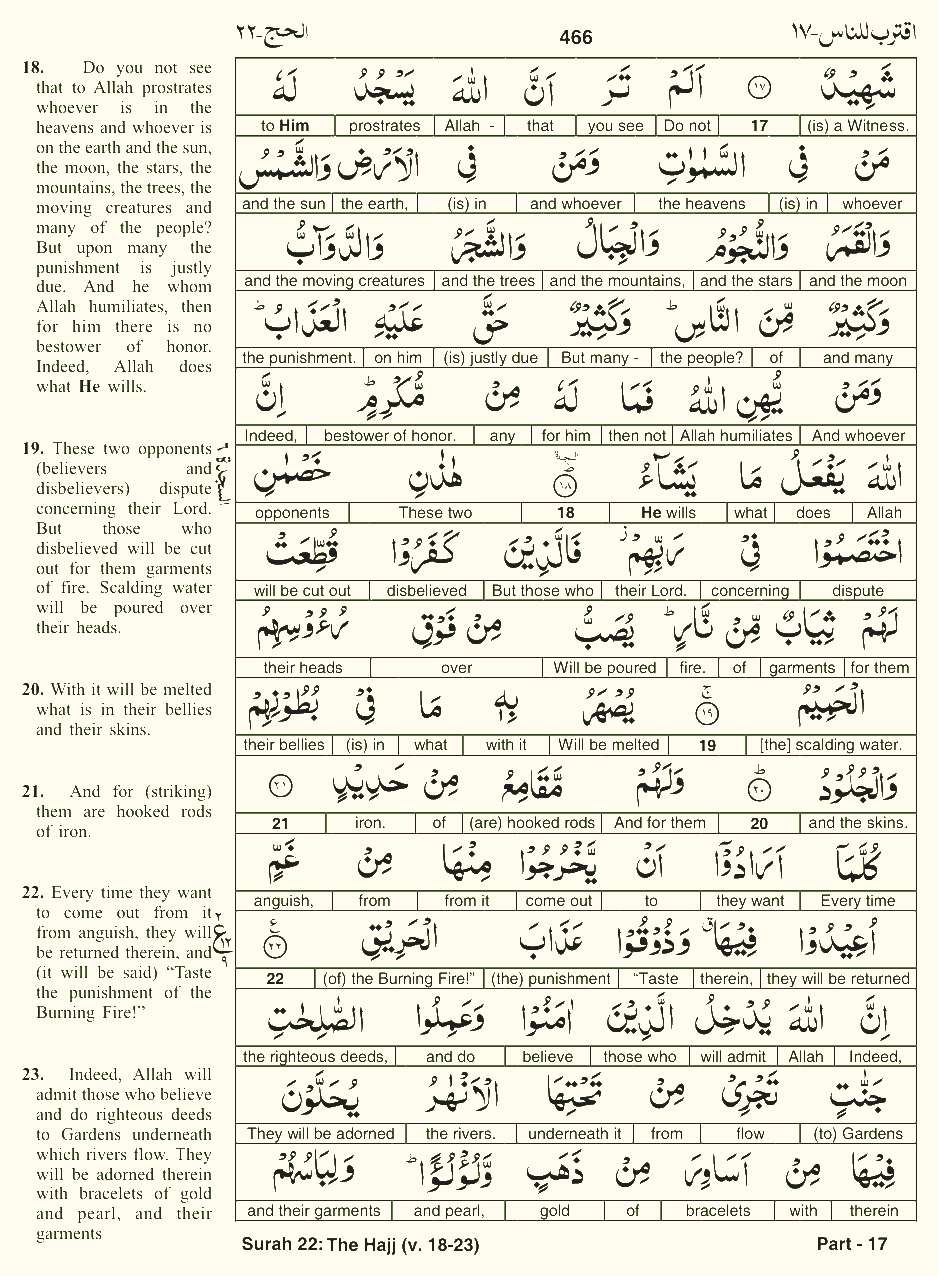 الحج-٢٢
466
اقترب للناس-١٧
18. Do you not see
that to Allah prostrates
whoever is in the
heavens and whoever is
on the earth and the sun,
the moon, the stars, the
mountains, the trees, the
moving creatures and
many of the people?
But upon many the
punishment is justly
due. And he whom
Allah humiliates, then
for him there is no
bestower of honor.
Indeed, Allah does
what He wills.
19. These two opponents
(believers and
disbelievers) dispute
concerning their Lord.
But those who
disbelieved will be cut
out for them garments
of fire. Scalding water
will be poured over
their heads.
20. With it will be melted
what is in their bellies
and their skins.
21. And for (striking)
them are hooked rods
of iron.
22. Every time they want
to come out from it
from anguish, they will
be returned therein, and
(it will be said) “Taste
the punishment of the
Burning Fire!”
23. Indeed, Allah will
admit those who believe
and do righteous deeds
to Gardens underneath
which rivers flow. They
will be adorned therein
with bracelets of gold
and pearl, and their
garments
شَهِيْدٌ ١٧ اَلَمْ تَرَ اَنَّ اللّٰهَ يَسْجُدُ لَهٗ
to Him prostrates Allah - that you see Do not 17 (is) a Witness.
مَنْ فِي السَّمٰوٰتِ وَمَنْ فِي الْاَرْضِ وَالشَّمْسُ
and the sun the earth, (is) in and whoever the heavens (is) in whoever
وَالْقَمَرُ وَالنُّجُوْمُ وَالْجِبَالُ وَالشَّجَرُ وَالدَّوَآبُّ
and the moving creatures and the trees and the mountains, and the stars and the moon
وَكَثِيْرٌ مِّنَ النَّاسِ ؕ وَكَثِيْرٌ حَقَّ عَلَيْهِ الْعَذَابُ ؕ
the punishment. on him (is) justly due But many - the people? of and many
وَمَنْ يُّهِنِ اللّٰهُ فَمَا لَهٗ مِنْ مُّكْرِمٍ ؕ اِنَّ
Indeed, bestower of honor. any for him then not Allah humiliates And whoever
اللّٰهَ يَفْعَلُ مَا يَشَآءُ ١٨ هٰذٰنِ خَصْمٰنِ
opponents These two 18 He wills what does Allah
اخْتَصَمُوْا فِيْ رَبِّهِمْ ز فَالَّذِيْنَ كَفَرُوْا قُطِّعَتْ
will be cut out disbelieved But those who their Lord. concerning dispute
لَهُمْ ثِيَابٌ مِّنْ نَّارٍ ؕ يُصَبُّ مِنْ فَوْقِ رُءُوْسِهِمُ
their heads over Will be poured fire. of garments for them
الْحَمِيْمُ ١٩ يُصْهَرُ بِهٖ مَا فِيْ بُطُوْنِهِمْ
their bellies (is) in what with it Will be melted 19 [the] scalding water.
وَالْجُلُوْدُ ٢٠ وَلَهُمْ مَّقَامِعُ مِنْ حَدِيْدٍ ٢١
21 iron. of (are) hooked rods And for them 20 and the skins.
كُلَّمَآ اَرَادُوْٓا اَنْ يَّخْرُجُوْا مِنْهَا مِنْ غَمٍّ
anguish, from from it come out to they want Every time
اُعِيْدُوْا فِيْهَا ق وَذُوْقُوْا عَذَابَ الْحَرِيْقِ ٢٢
22 (of) the Burning Fire!” (the) punishment “Taste therein, they will be returned
اِنَّ اللّٰهَ يُدْخِلُ الَّذِيْنَ اٰمَنُوْا وَعَمِلُوا الصّٰلِحٰتِ
the righteous deeds, and do believe those who will admit Allah Indeed,
جَنّٰتٍ تَجْرِيْ مِنْ تَحْتِهَا الْاَنْهٰرُ يُحَلَّوْنَ
They will be adorned the rivers. underneath it from flow (to) Gardens
فِيْهَا مِنْ اَسَاوِرَ مِنْ ذَهَبٍ وَّلُؤْلُؤًا ؕ وَلِبَاسُهُمْ
and their garments and pearl, gold of bracelets with therein
Surah 22: The Hajj (v. 18-23)
Part - 17